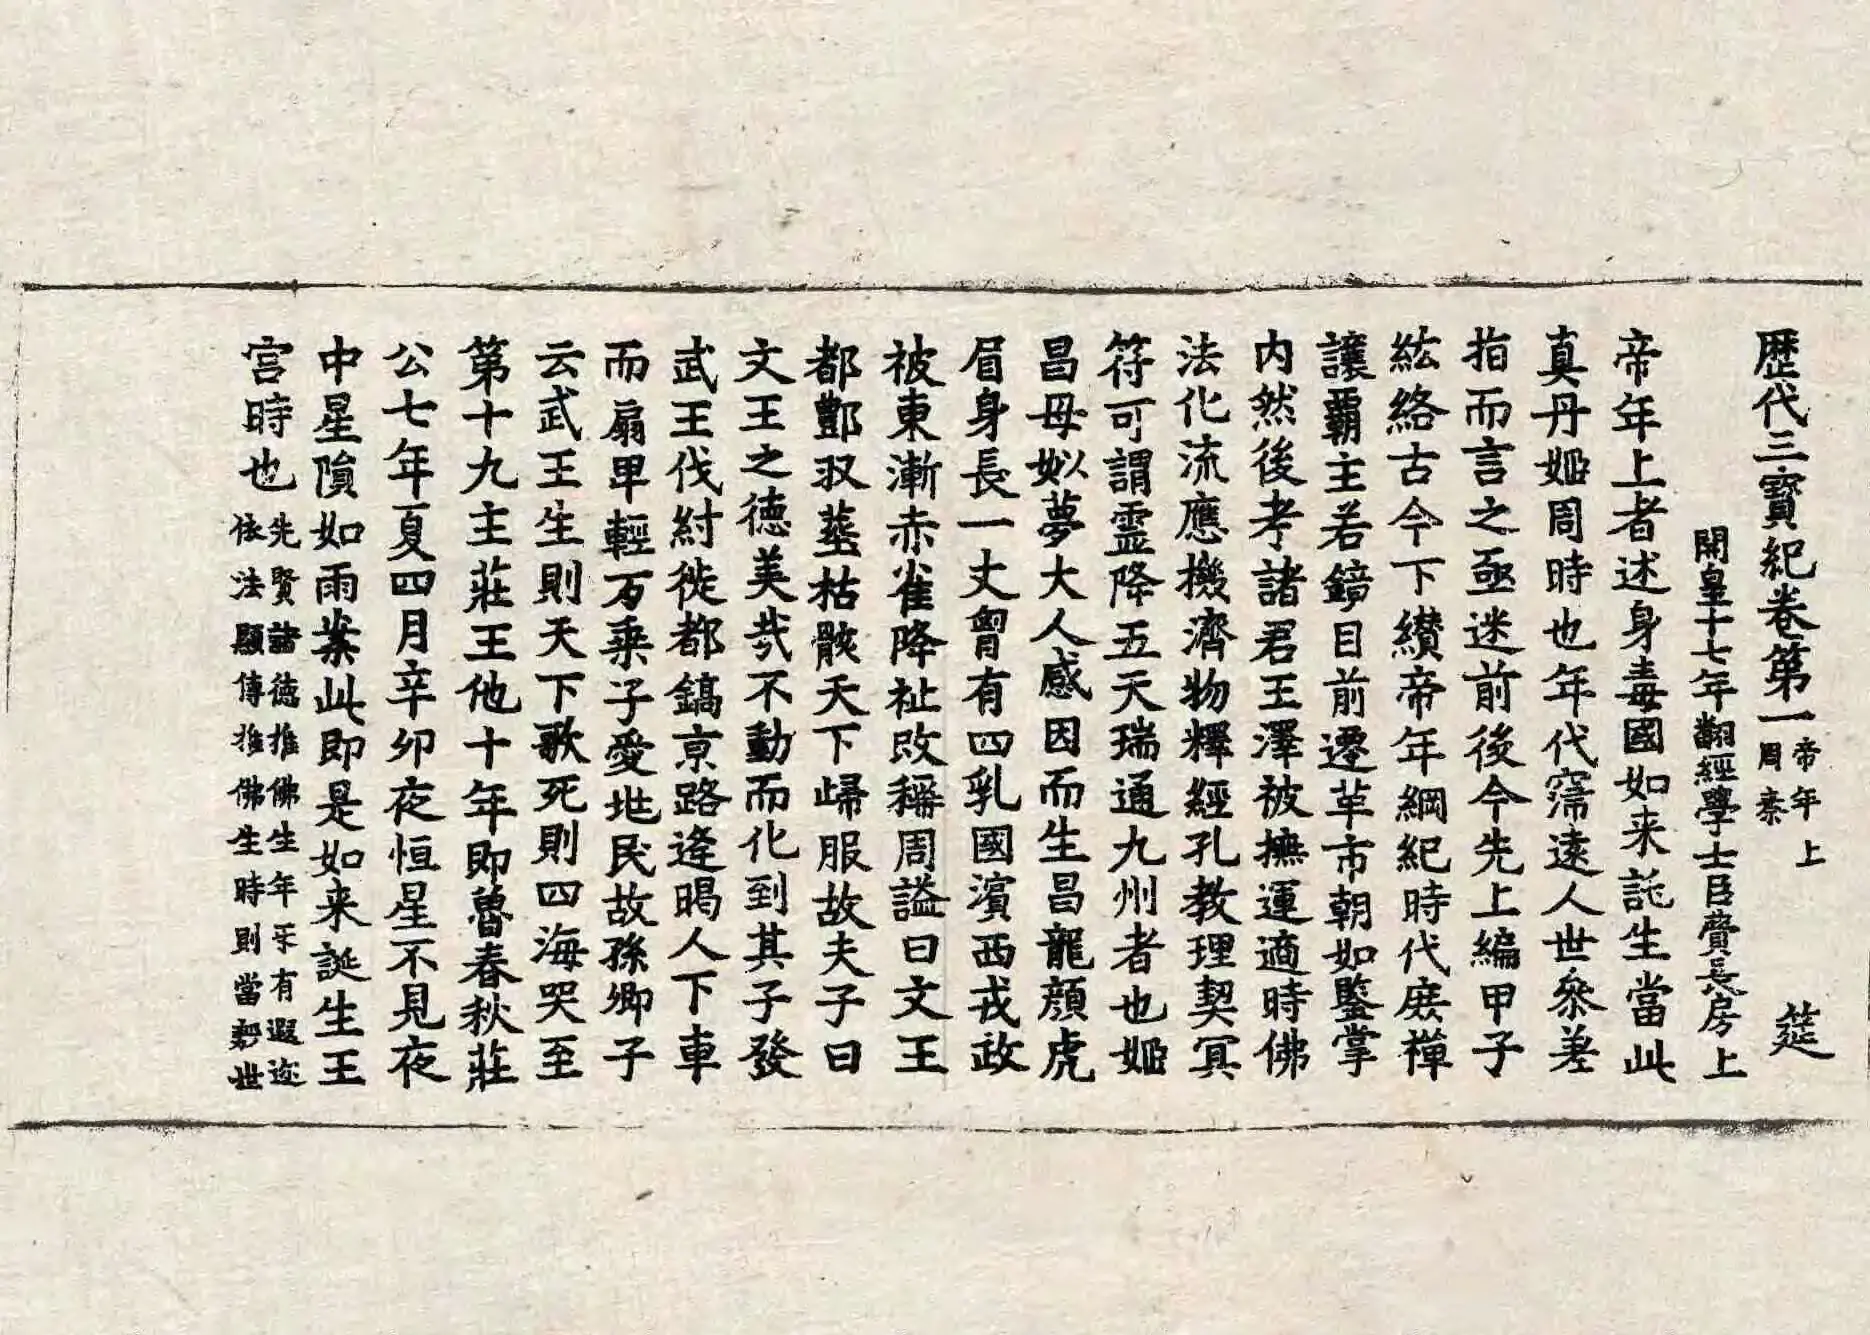 歴代三寳紀卷第一 帝年上 周秦 筵
開皇十七年翻經學士臣費長房上
帝年上者述身毒國如来託生當此
真丹姬周時也年代窎遠人世叅差
指而言之亟迷前後今先上編甲子
紘絡古今下纉帝年綱紀時代庻禪
讓覇主若鏡目前遷革市朝如鑒掌
内然後考諸君王澤被撫運適時佛
法化流應機濟物釋經孔教理契冥
符可謂霊降五天瑞通九州者也姬
昌母姒夢大人感因而生昌龍顔虎
眉身長一丈胷有四乳國濱西戎政
被東漸赤雀降祉改稱周謚曰文王
都酆収葬枯骸天下歸服故夫子曰
文王之德美㢤不動而化到其子發
武王伐紂徙都鎬京路逢暍人下車
而扇甲輕万乘子愛地民故孫卿子
云武王生則天下歌死則四海哭至
第十九主莊王他十年即魯春秋莊
公七年夏四月辛卯夜恒星不見夜
中星隕如雨案此即是如来誕生王
宫時也 先賢諸德推佛生年互有遐迩
依法顯傳推佛生時則當殷世